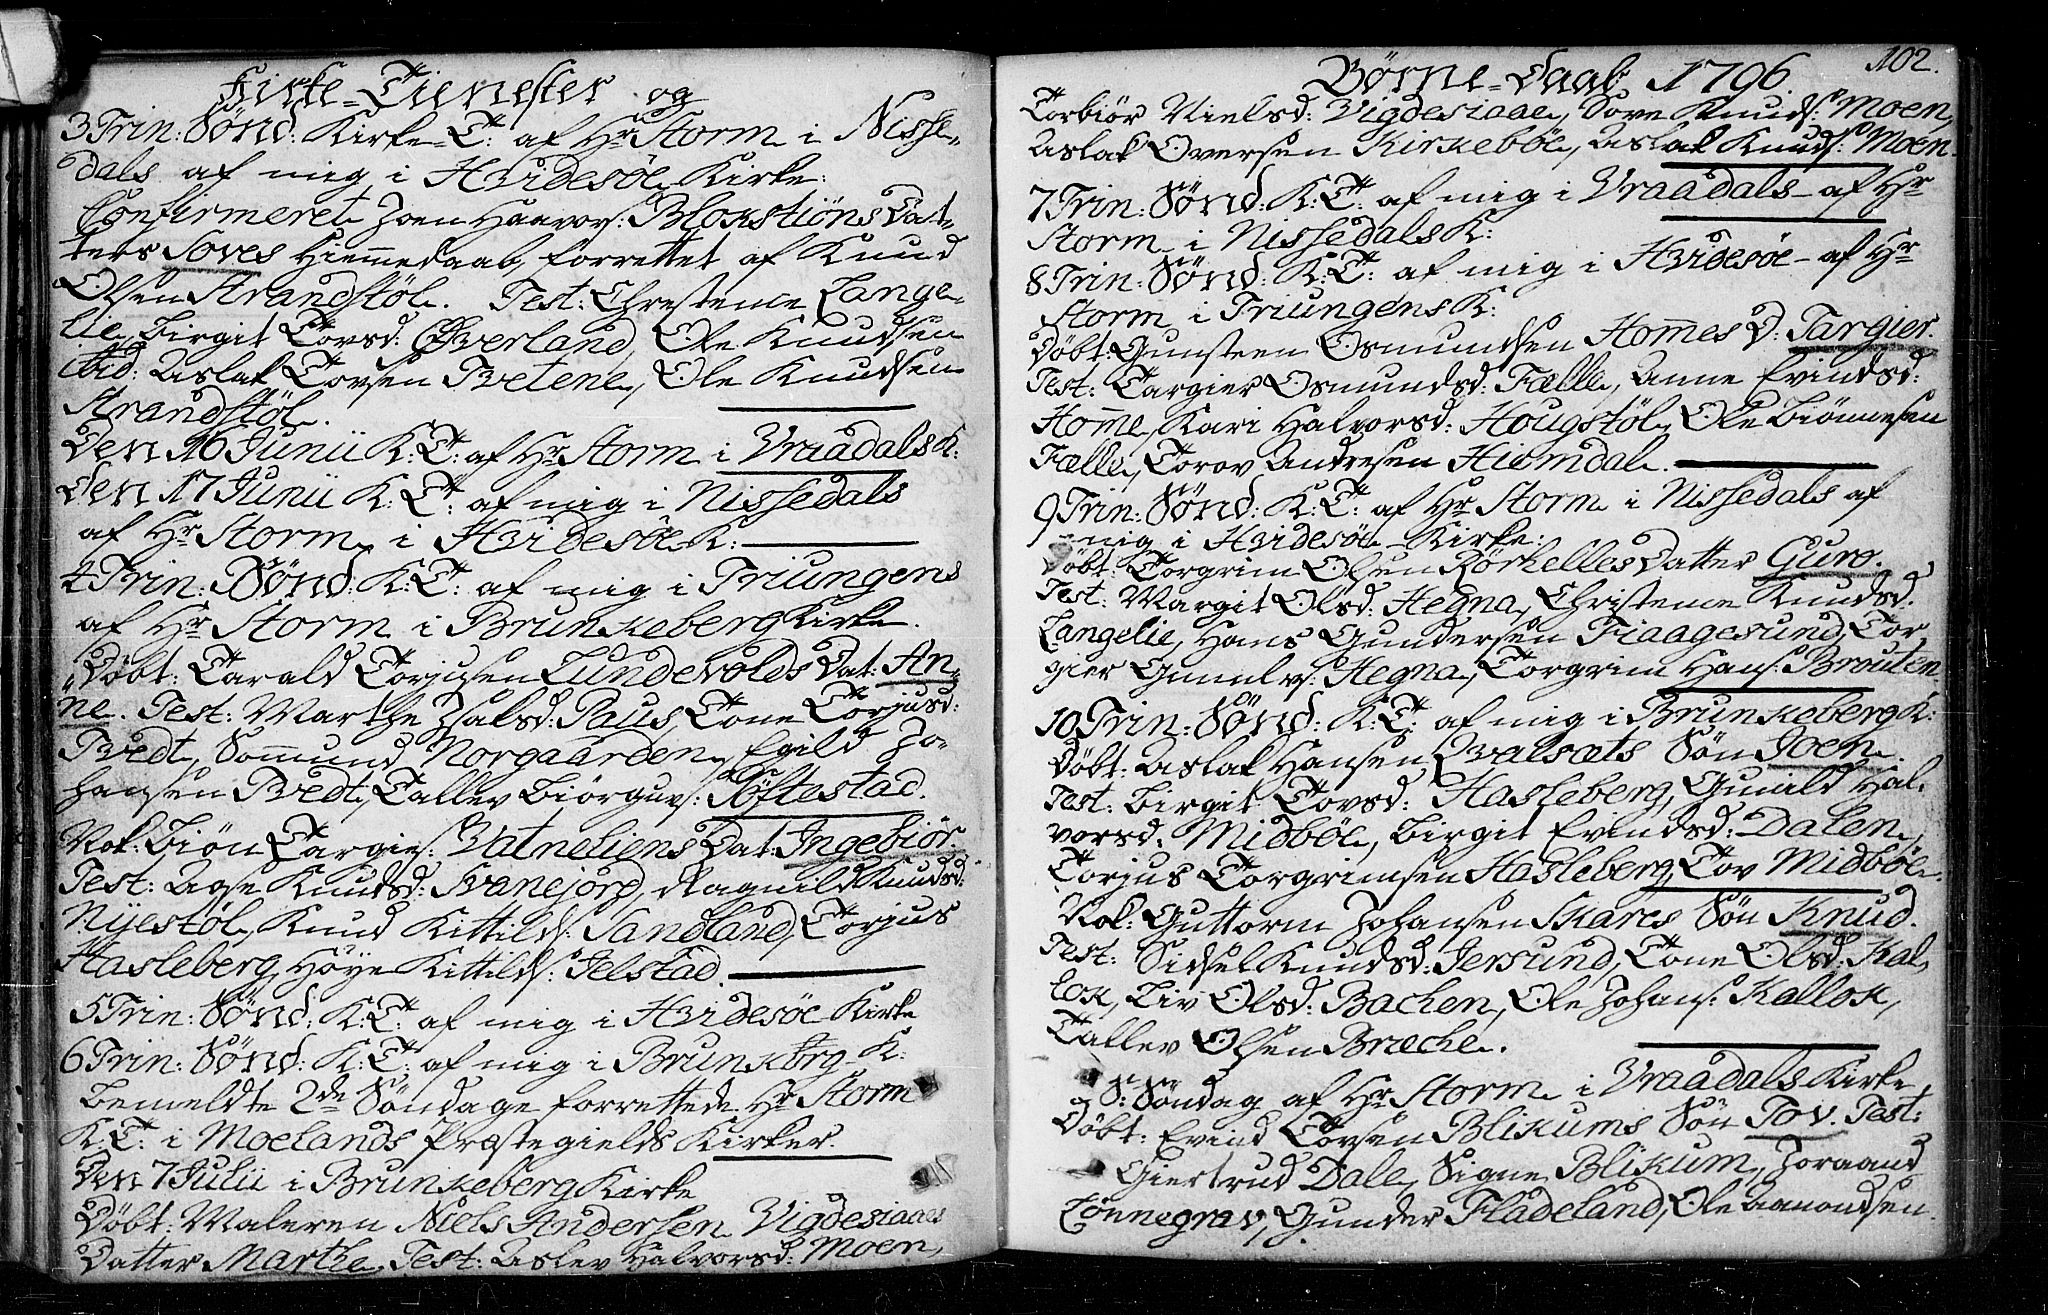 Kirke-Tienester og
3 Trin: Sønd: Kirke-T: af Hr Storm i Nisse-
dals af mig i Hvidesøe Kirke:
Confirmeret Joen Haavors: Blokstiøns Dat-
ters Toves Hiemmedaab, forrettet af Knud
Olsen Strandstøl. Test: Chrestence Lange-
lie, Birgit Tovsd: Øverland, Ole Knudsen
ibid: Aslak Tovsen Tvetene, Ole Knudsen
Strandstøl.
Den 16 Junii K:T: af Hr Storm i Vraadals K:
den 17 Junii K:T: af mig i Nissedals
af Hr Storm i Hvidesøe K:
4 Trin: Sønd: K:T: af mig i Triungens
af Hr Storm i Brunkeberg Kirke.
Døbt: Tarald Torjusen Lundevolds Dat: An-
ne. Test: Marthe Isalsd: Paus, Tone Torjusd:
Tvedt, Sommund Norgaarden, Egild Jo-
hansen Tvedt, Tallev Biørguvs: Søftestad.
Nok: Biøn Targies: Vatneliens Dat: Ingebiør.
Test: Agse Knudsd: Svanejord, Ragnild Knudsd:
Nyestøl, Knud Kittilds: Sandland, Torjus
Hasleberg, Høye Kittilds: Jelstad.
5 Trin: Sønd: K:T: af mig i Hvidesøe Kirke
6 Trin: Sønd: K:T: af mig i Brunkbrg K:
Bemeldte 2de Søndage forrettede Hr Storm
K:T: i Moelands Præstegields Kirker.
Den 7 Julii i Brunkeberg Kirke
Døbt: Maleren Niels Andersen Vigdesiaaes
Datter Marthe. Test: Aslev Halvorsd: Moen,
Børne-Daab 1796. 102.
Torbiør Nielsd: Vigdesiaae, Sove Knuds: Moen,
Aslak Oversen Kirkebøe, Aslak Knuds: Moen.
7 Trin: Sønd: K:T: af mig i Vraadals - af Hr
Storm i Nissedals K:
8 Trin: Sønd: K:T: af mig i Hvidesøe - af Hr
Storm i Triungens K:
Døbt: Gunsteen Osmundsen Hommes D: Targier.
Test: Targier Osmundsd: Fælle, Anne Evindsd:
Homme, Kari Halvorsd: Hougstøl, Ole Biønnesen
Fælle, Torov Andresen Hiemdal.
9 Trin: Sønd: K:T: af Hr Storm i Nissedals af
mig i Hvidesøe Kirke:
Døbt: Torgrim Olsen Rørhelles Datter Guro.
Test: Margit Olsd: Hegna, Christence Knudsd:
Langelie, Hans Gundersen Fiaagesund, Tor
gier Gunulvs: Hegna, Torgrim Hans: Brouten
10 Trin: Sønd: K:T: af mig i Brunkeberg K:
Døbt: Aslak Hansen Qvalsæts Søn Joen.
Test: Birgit Tovsd: Hasleberg, Gunild Hal-
vorsd: Midbøe, Birgit Evindsd: Dalen,
Torjus Torgrimsen Hasleberg, Tov Midbøe.
Nok: Guttorm Johansen Skares Søn Knud.
Test: Sidsel Knudsd: Jersund, Tone Olsd: Kal
lok, Liv Olsd: Bachen, Ole Johans: Kallok,
Tallev Olsen Bræche.
S: Søndag af Hr Storm i Vraadals Kirke
Døbt: Evind Tovsen Blikums Søn Tov. Test:
Giertrud Dale, Signe Blikum, Joraand
Lonnegrav, Gunder Fladeland, Ole Aamondsen.